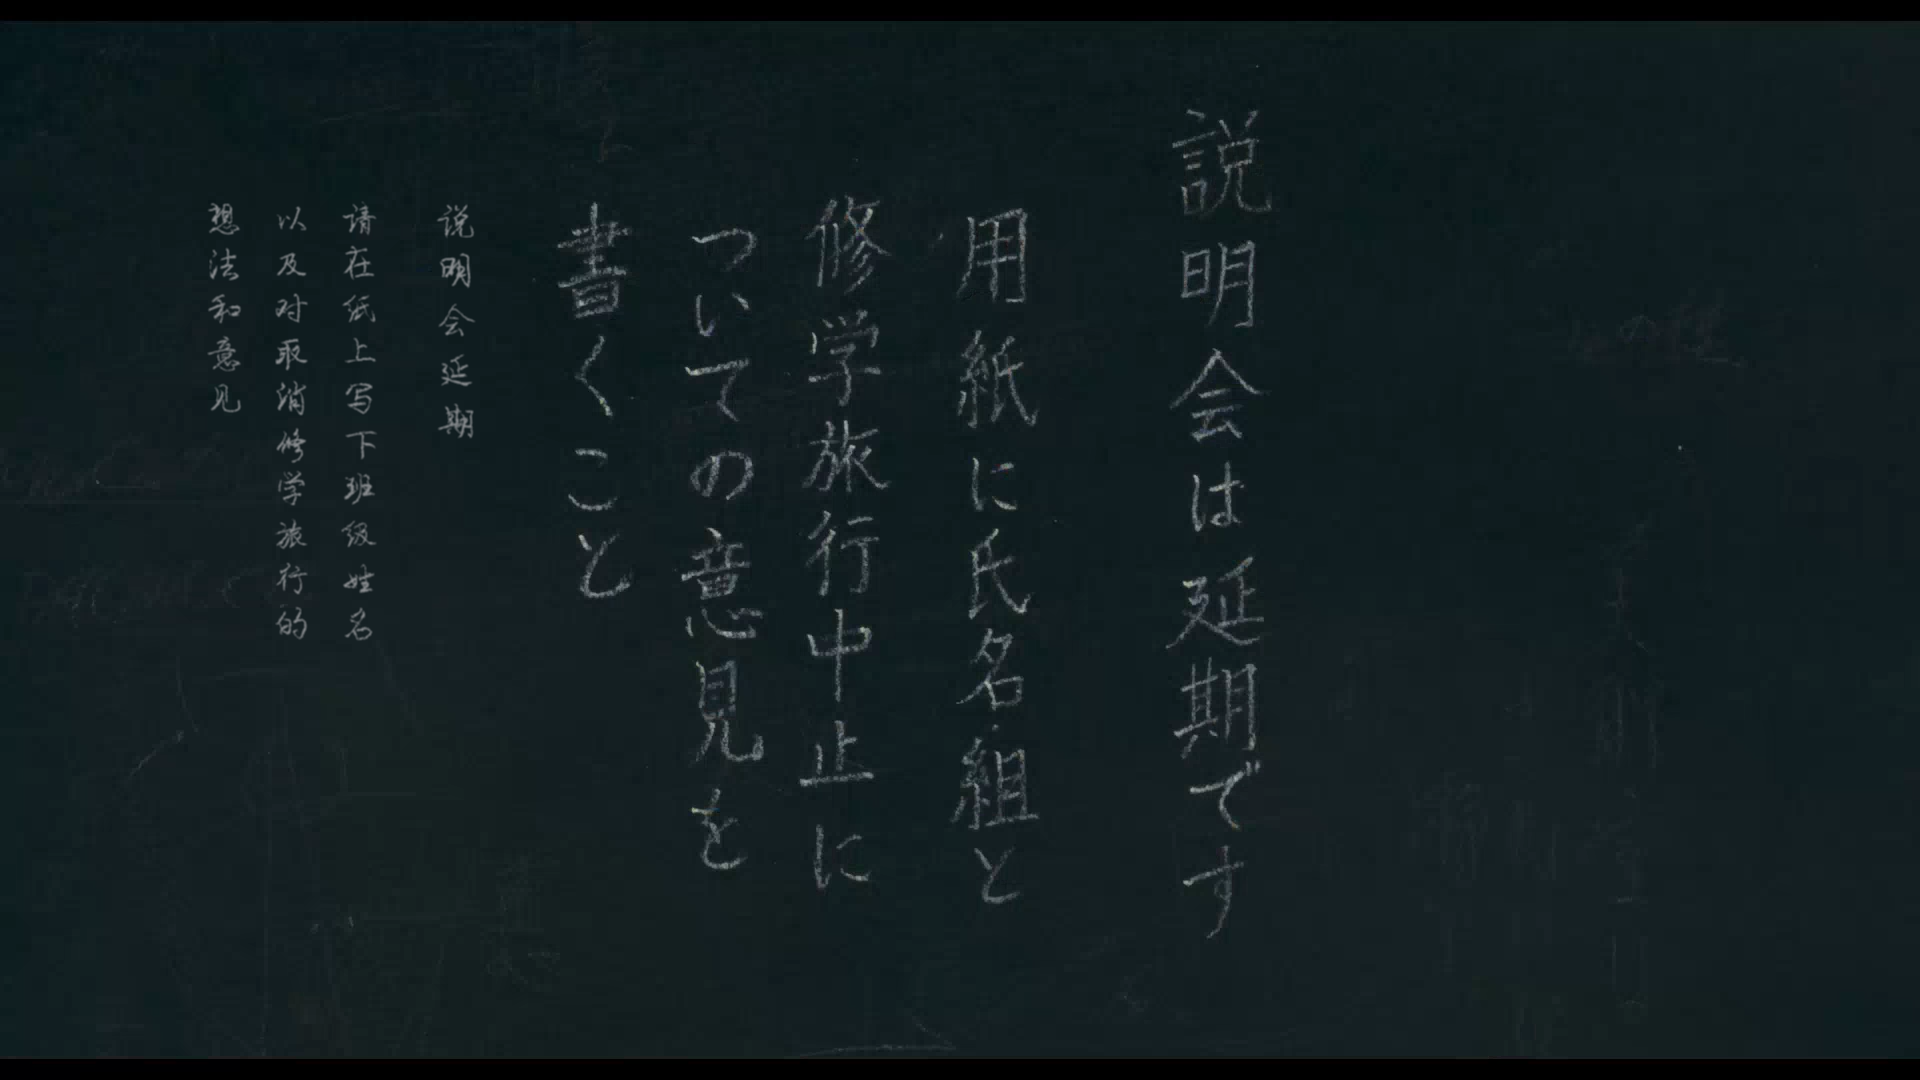 説明会は延期です
用紙に氏名・組と
修学旅行中止に
ついての意見を
書くこと
说明会延期
请在纸上写下班级姓名
以及对取消修学旅行的
想法和意见